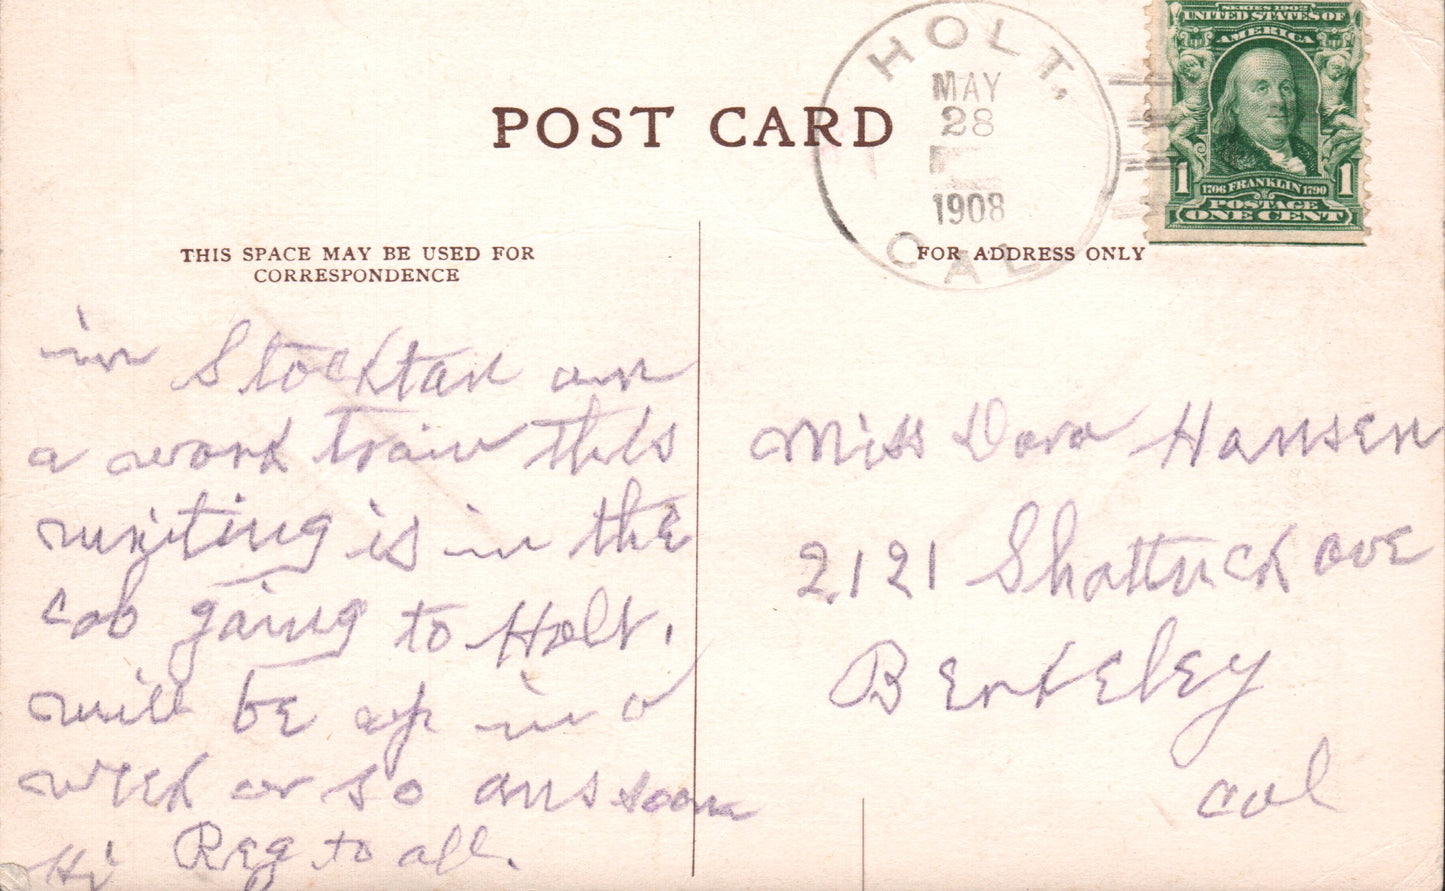 POST CARD
HOLT,
MAY
28
1908
CAL
SERIES 1902
UNITED STATES OF
AMERICA
1 1706 FRANKLIN 1790 1
POSTAGE
ONE CENT
THIS SPACE MAY BE USED FOR
CORRESPONDENCE
in Stockton am
a work train this
writing is in the
cab going to Holt.
will be up in a
week or so ans soon
Reg to all.
FOR ADDRESS ONLY
Miss Dora Hansen
2121 Shattuck ave
Berkeley
Cal